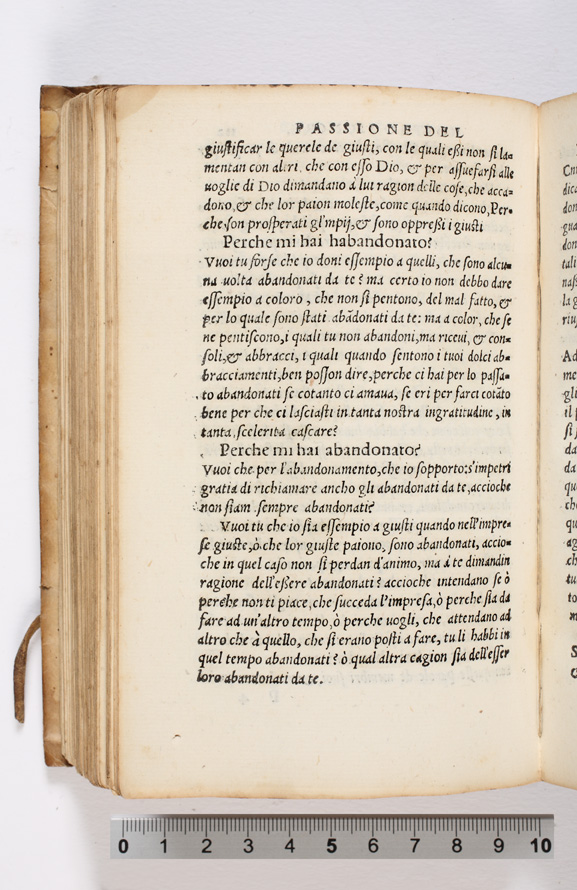 PASSIONE DEL
giustificar le querele de giusti, con le quali eßi non si la-
mentan con altri che con esso Dio, & per assuefarsi alle
uoglie di Dio dimandano à lui ragion delle cose, che acca-
dono, & che lor paion moleste, come quando dicono, Per-
che son prosperati gl'impij, & sono oppreßi i giusti
Perche mi hai habandonato?
Vuoi tu forse che io doni essempio a quelli, che sono alcu-
na uolta abandonati da te? ma certo io non debbo dare
essempio a coloro, che non si pentono, del mal fatto, &
per lo quale sono stati abãdonati da te: ma a color, che se
ne pentiscono, i quali tu non abandoni, ma riceui, & con-
soli, & abbracci, i quali quando sentono i tuoi dolci ab-
bracciamenti, ben posson dire, perche ci hai per lo passa-
to abandonati se cotanto ci amaua, se eri per farci cotãto
bene per che ci lasciasti in tanta nostra ingratitudine, in
tanta scelerita cascare?
Perche mi hai abandonato?
Vuoi che per l'abandonamento, che io sopporto: s'impetri
gratia di richiamare ancho gli abandonati da te, accioche
non siam sempre abandonati?
Vuoi tu che io sia essempio a giusti quando nell'impre-
se giuste, ò che lor giuste paiono, sono abandonati, accio-
che in quel caso non si perdan d'animo, ma à te dimandin
ragione dell'eßere abandonati? accioche intendano se ò
perche non ti piace, che succeda l'impresa, ò perche sia da
fare ad un'altro tempo, ò perche uogli, che attendano ad
altro che à quello, che si erano posti a fare, tu li habbi in
quel tempo abandonati? ò qual altra cagion sia dell'esser
loro abandonati da te.
Ad
me
gli
il
si
da
da
qu
che
qu
ag
ch
tu
to
0 1 2 3 4 5 6 7 8 9 10